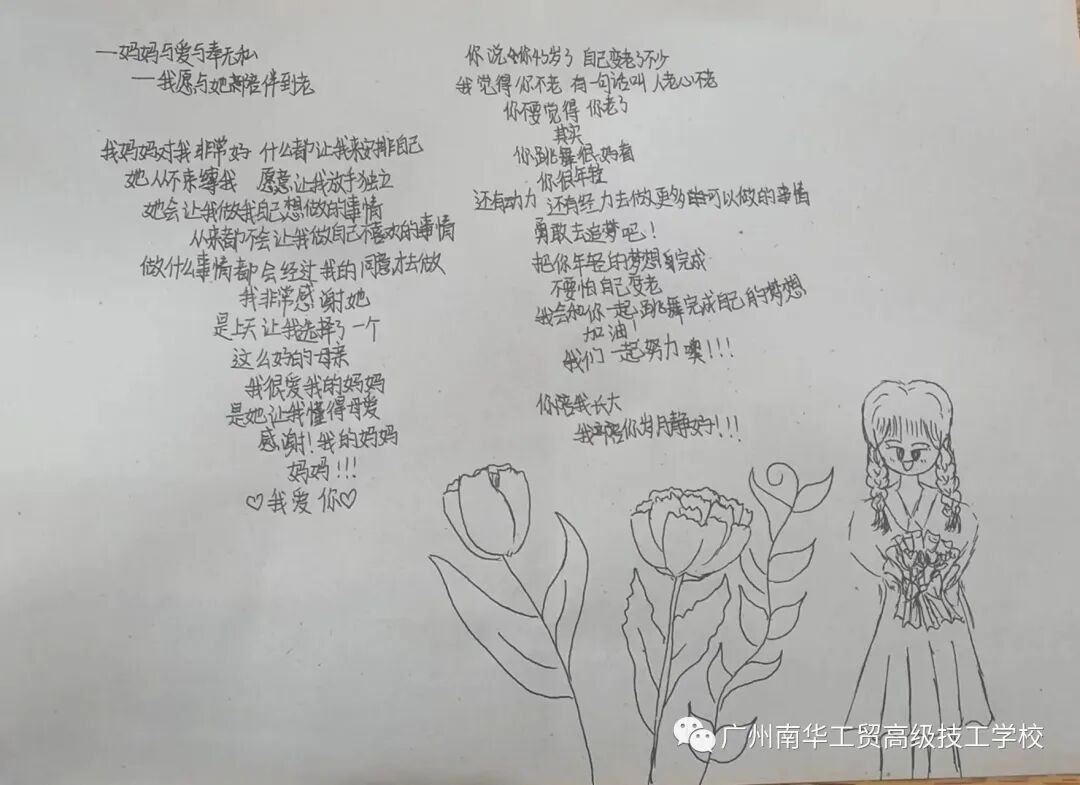 一妈妈与爱与奉无私
一我愿与她陪伴到老
我妈妈对我非常好 什么都让我来安排自己
她从不束缚我 愿意让我放手独立
她会让我做我自己想做的事情
从来都不会让我做自己不喜欢的事情
做什么事情都会经过我的同意才去做
我非常感谢她
是上天让我选择了一个
这么好的母亲
我很爱我的妈妈
是她让我懂得母爱
感谢!我的妈妈
妈妈!!!
♡我爱你♡
你说今你45岁了 自己变老了不少
我觉得你不老 有一句话叫 人老心不老
你不要觉得 你老了
其实
你跳舞很好看
你很年轻
还有动力 还有经力去做更多的可以做的事情
勇敢去追梦吧!
把你年轻的梦想完成
不要怕自己变老
我会和你一起跳舞完成自己的梦想
加油!
我们一起努力噢!!!
你陪我长大
我陪你岁月静好!!!
广州南华工贸高级技工学校